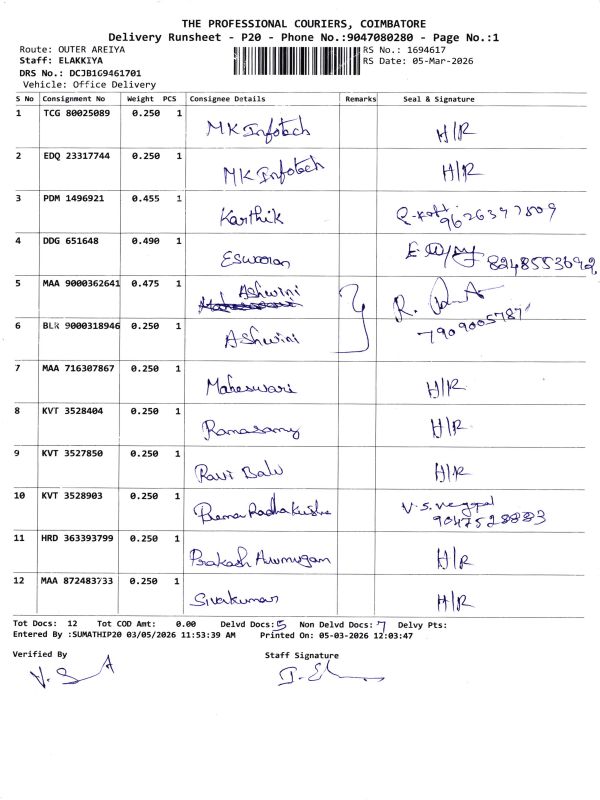 THE PROFESSIONAL COURIERS, COIMBATORE
Delivery Runsheet - P20 - Phone No.:9047080280 - Page No.:1
Route: OUTER AREIYA RS No.: 1694617
Staff: ELAKKIYA RS Date: 05-Mar-2026
DRS No.: DCJB1G9461701
Vehicle: Office Delivery
S No Consignment No Weight PCS Consignee Details Remarks Seal & Signature
1 TCG 80025089 0.250 1 MK Infotech H/R
2 EDQ 23317744 0.250 1 MK Infotech H/R
3 PDM 1496921 0.455 1 Karthik 9626397809
4 DDG 651648 0.490 1 Eswaran 8248553692
5 MAA 9000362641 0.475 1 Ashwini R.
6 BLR 9000318946 0.250 1 Ashwini 7909005787
7 MAA 716307867 0.250 1 Maheswari H/R
8 KVT 3528404 0.250 1 Ramasamy H/R
9 KVT 3527850 0.250 1 Ravi Balu H/R
10 KVT 3528903 0.250 1 Prema Radha V.S.
11 HRD 363393799 0.250 1 Prakash Arumugam H/R
12 MAA 872483733 0.250 1 Sivakumar H/R
Tot Docs: 12 Tot COD Amt: 0.00 Delvd Docs: 5 Non Delvd Docs: 7 Delvy Pts:
Entered By :SUMATHIP20 03/05/2026 11:53:39 AM Printed On: 05-03-2026 12:03:47
Verified By Staff Signature